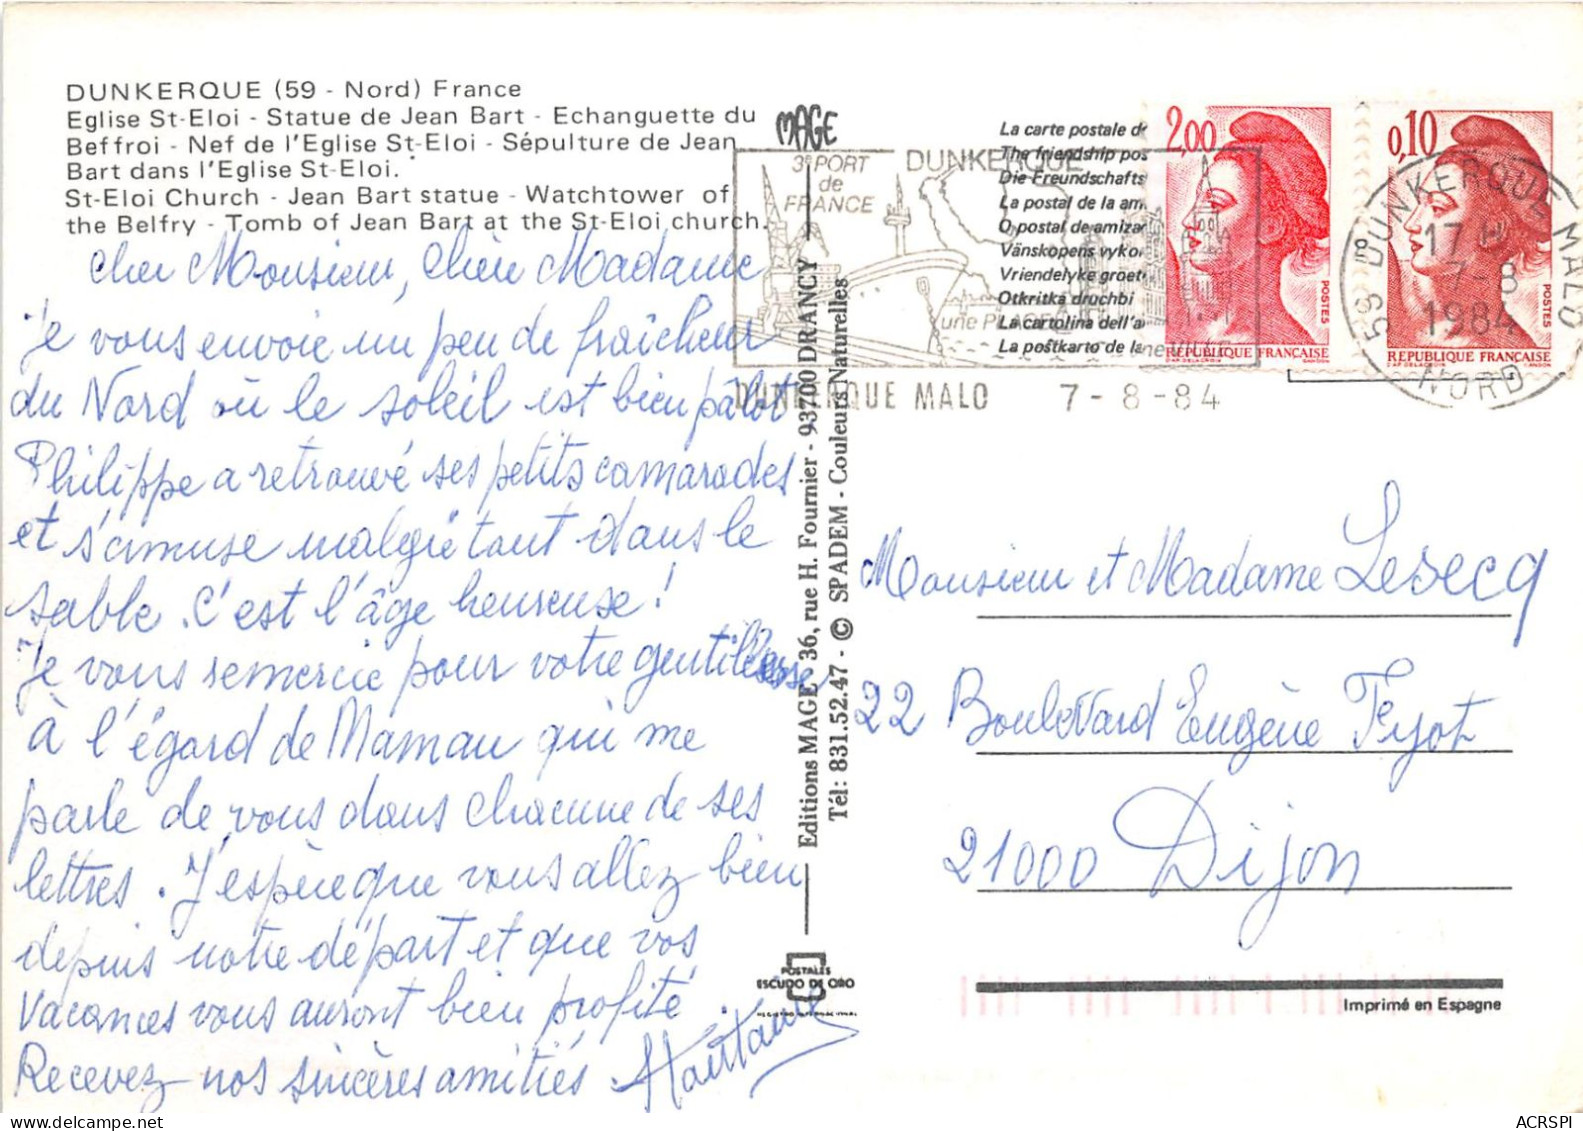 DUNKERQUE (59 - Nord) France
Eglise St-Eloi - Statue de Jean Bart - Echanguette du
Beffroi - Nef de l'Eglise St-Eloi - Sépulture de Jean
Bart dans l'Eglise St-Eloi.
St-Eloi Church - Jean Bart statue - Watchtower of
the Belfry - Tomb of Jean Bart at the St-Eloi church.
Cher Monsieur, Chère Madame
Je vous envoie un peu de fraîcheur
du Nord où le soleil est bien pâlot
Philippe a retrouvé ses petits camarades
et s'amuse malgré tout dans le
sable. C'est l'âge heureuse !
Je vous remercie pour votre gentillesse
à l'égard de Maman qui me
parle de vous dans chacune de ses
lettres. J'espère que vous allez bien
depuis notre départ et que vos
vacances vous auront bien profité.
Recevez nos sincères amitiés.
MAGE
Editions MAGE 36, rue H. Fournier - 93700 DRANCY
Tél: 831.52.47 - © SPADEM - Couleurs Naturelles
POSTALES
ESCUDO DE ORO
La carte postale de
The friendship pos
Die Freundschafts
La postal de la ami
O postal de amizad
Vänskopens vykor
Vriendelyke groet
Otkritka druchbi
La cartolina dell'a
La postkarto de la
3e PORT
de
FRANCE
DUNKERQUE
une PLAGE
une VILLE
DUNKERQUE MALO 7-8-84
2,00
POSTES
REPUBLIQUE FRANÇAISE
D'AP. DELACROIX GANDON
0,10
POSTES
REPUBLIQUE FRANÇAISE
D'AP. DELACROIX GANDON
59 Dº DUNKERQUE MALO
17 H
7-8
1984
NORD
Monsieur et Madame Lesecq
22 Boulevard Eugène Fyot
21000 Dijon
Imprimé en Espagne
ACRSPI